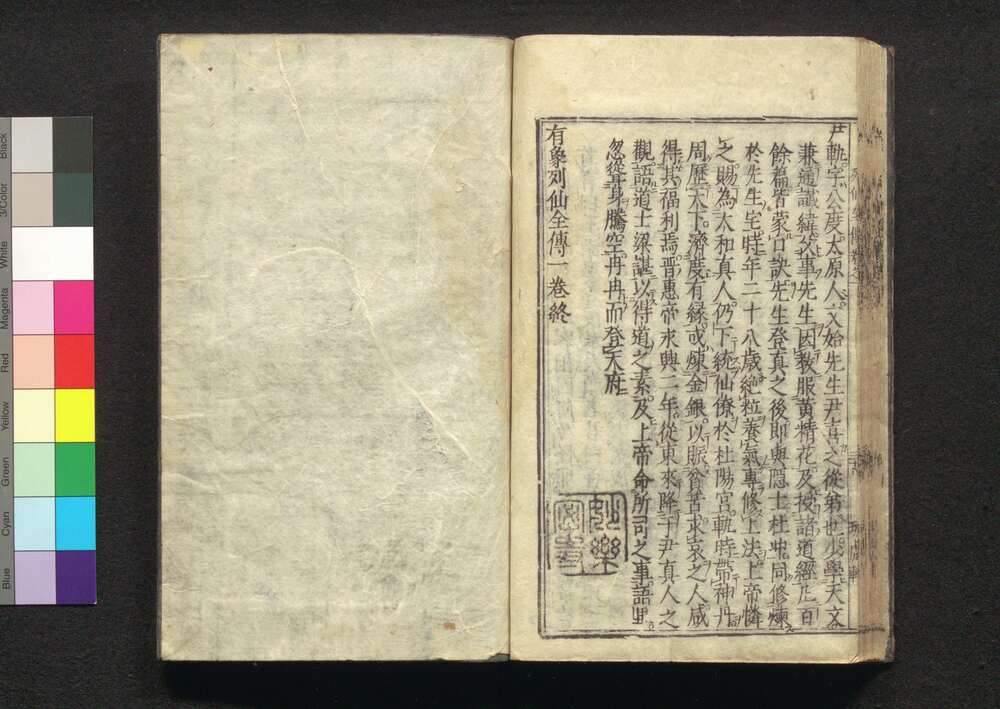 尹軌字公度太原人文始先生尹喜之從弟也少學天文
兼通讖緯父事先生因教服黃精花及授諸道經凡百
餘篇皆蒙口訣先生登真之後即與隱士杜冲同修煉
於先生宅時年二十八歲絶粒養氣專修上法上帝憐
之賜為太和真人仍下統仙僚於杜陽宮軌時帶神丹
周歷天下濟度有緣或煉金銀以賑貧苦求哀之人咸
得其福利焉晋惠帝永興二年從東來降于尹真人之
觀語道士梁諶以得道之素及上帝命所司之事語畢
忽從身騰空冉冉而登天府
有象列仙全傳一卷終
Black
3/Color
White
Magenta
Red
Yellow
Green
Cyan
Blue